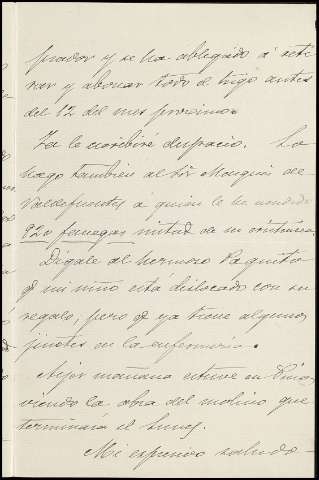 prador y se ha obligado á reti-
rar y abonar todo el trigo antes
del 12 del mes próximo.
Ya le escribiré despacio. Lo
hago también al Sr Marqués de
Valdefuentes á quien le he vendido
920 fanegas mitad de su existencia.
Dígale al hermoso Paquito
q̃ mi niño está dislocado con su
regalo, pero q̃ ya tiene algunos
jinetes en la enfermería.
Ayer mañana estuve en
viendo la obra del molino que
terminará el lunes.
Mi expresivo saludo